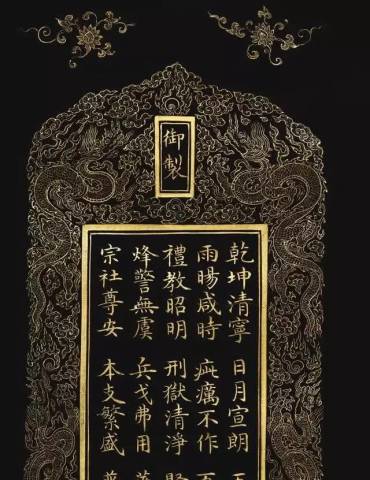 御製
乾坤清寧 日月宣朗
雨暘咸時 疵癘不作
禮教昭明 刑獄清淨
烽警無虞 兵戈弗用
宗社尊安 本支繁盛